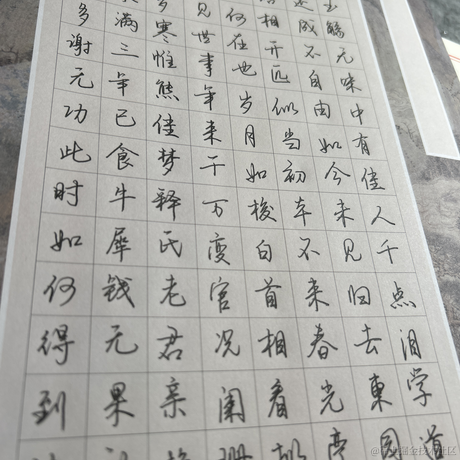 觞无味中有佳人千点泪学道
成不自由如今未见归去东园
相开匹似当初本不来春光亭
何在也岁月如梭白首相看拟
见世事年来千万变官况阑珊
寒惟熊佳梦释氏老君亲抱
满三年已食牛犀钱元果
多谢无功此时如何得到